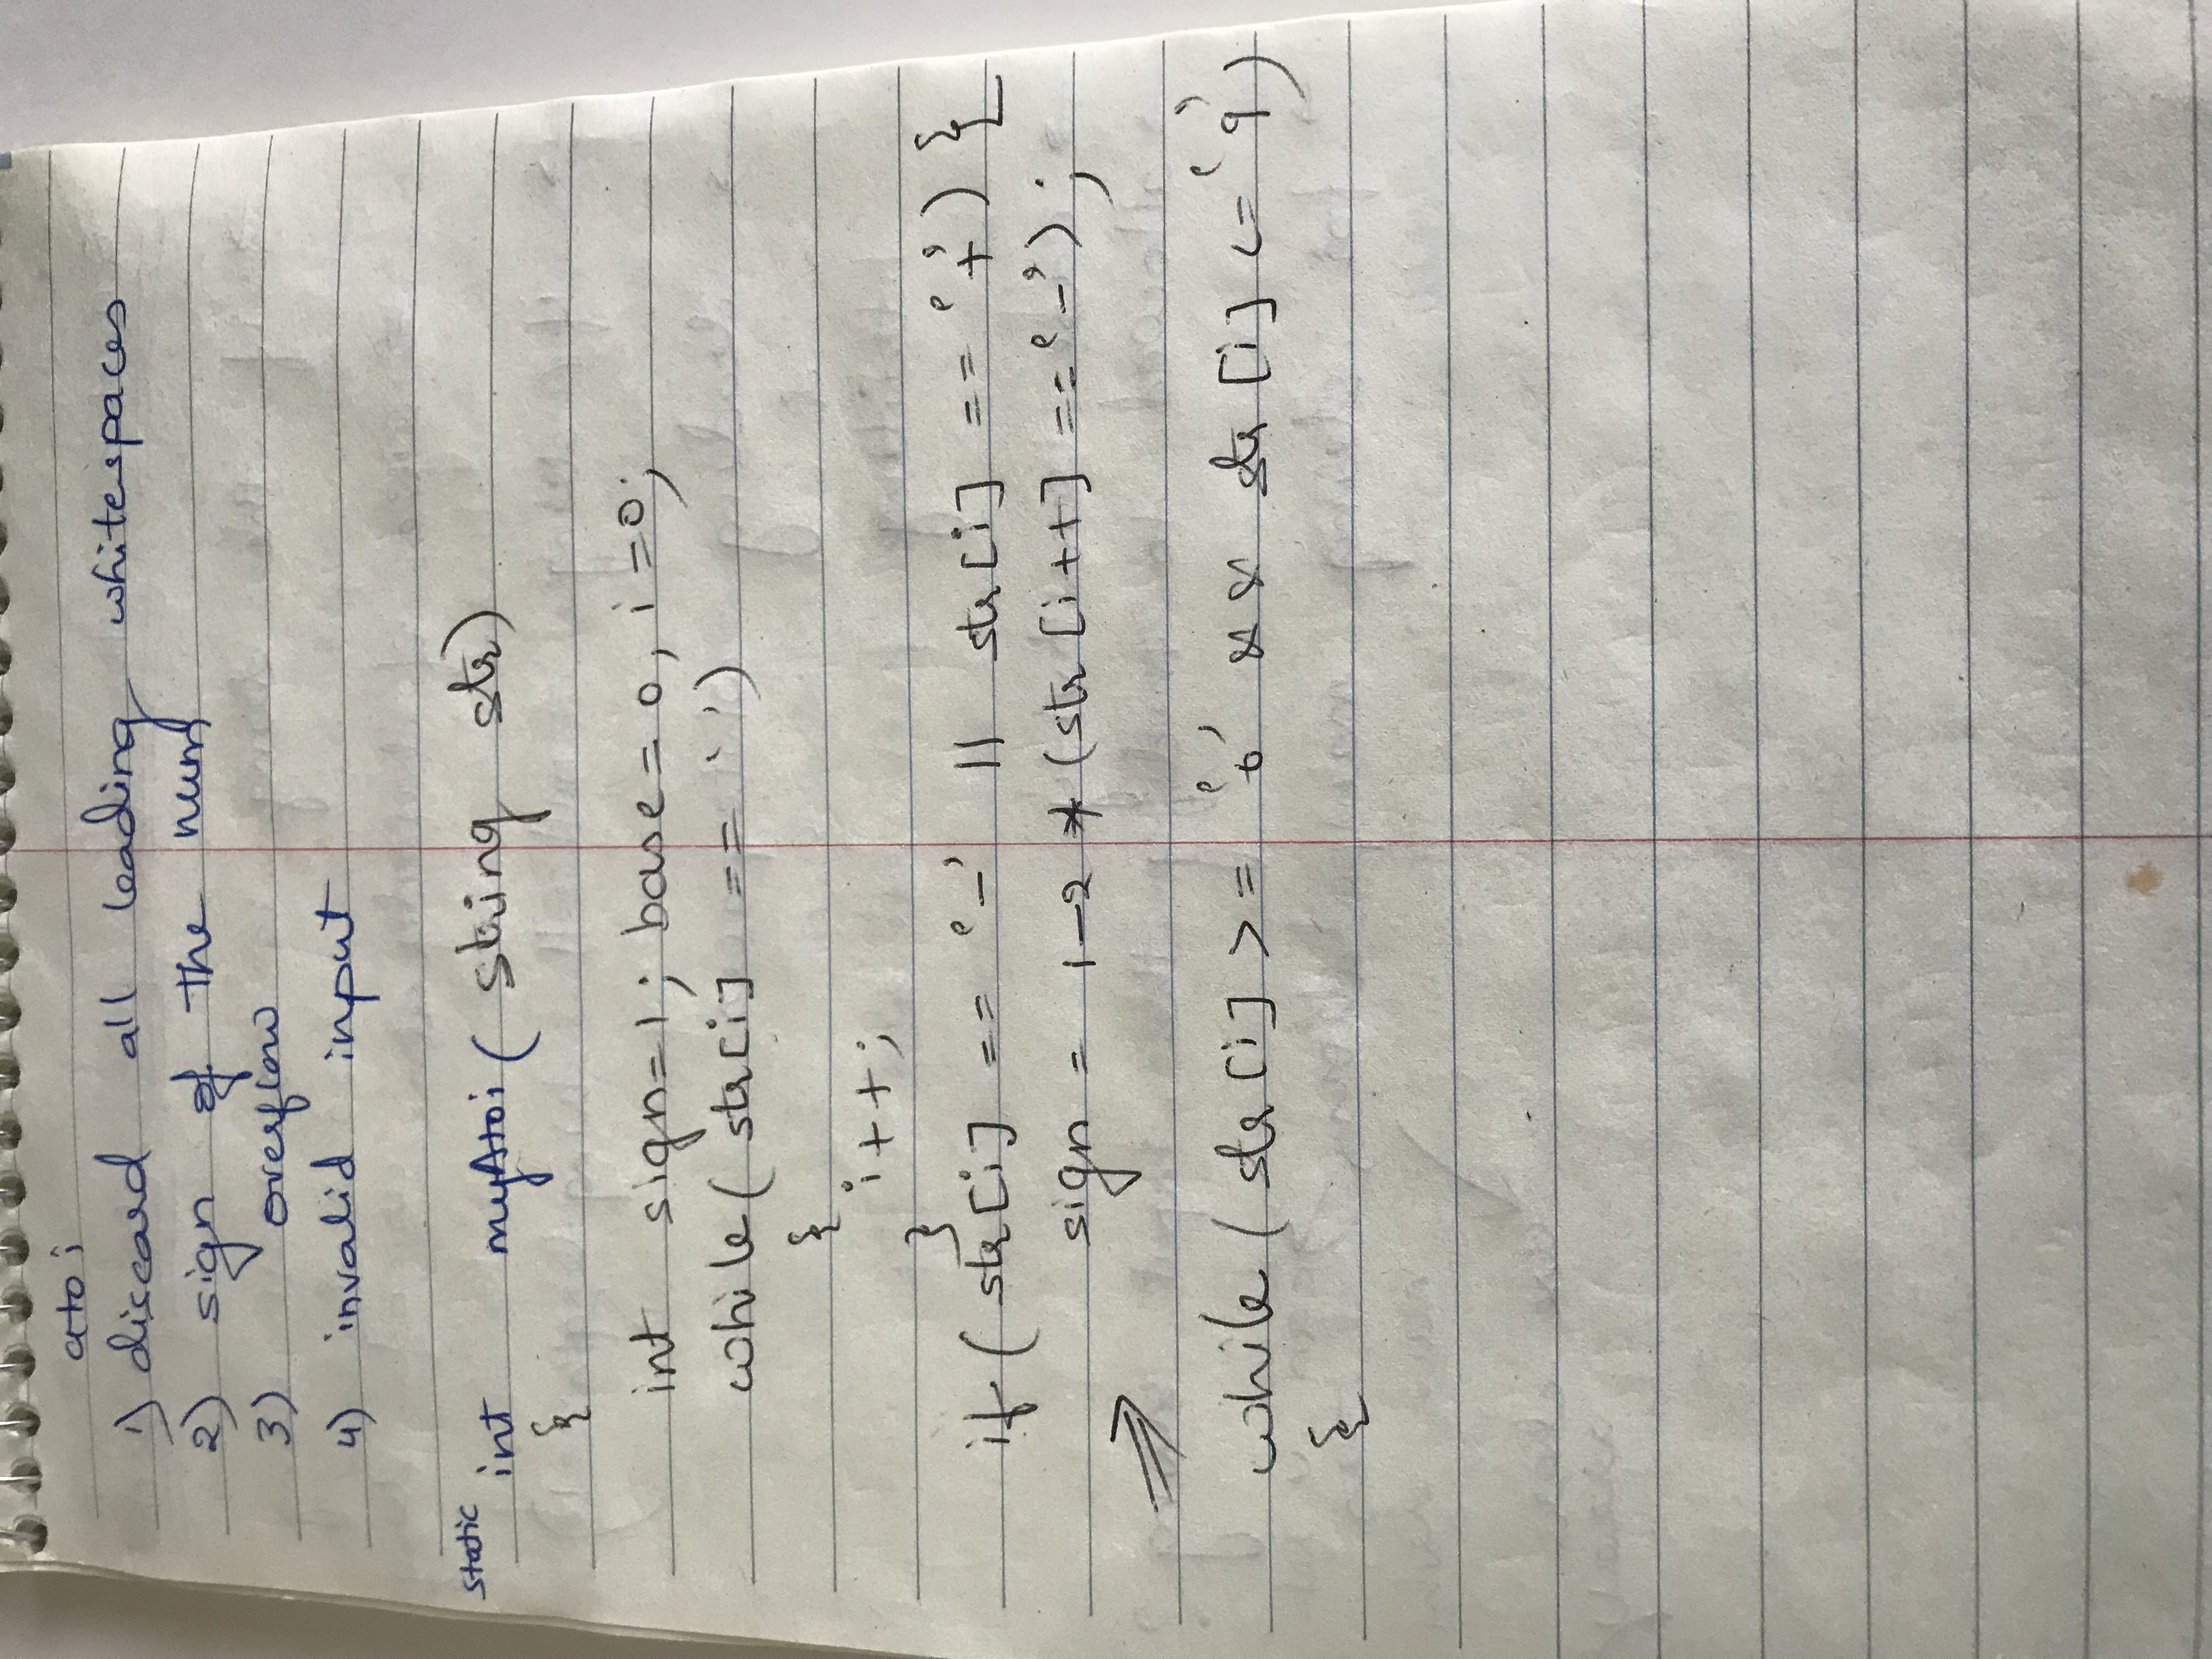 atoi
1) discard all leading whitespaces
2) sign of the num
3) overflow
4) invalid input
static int myAtoi( string str)
{
int sign=1; base=0, i=0;
while( str[i] == ' ')
{
i++;
}
if( str[i] == '-' || str[i] == '+') {
sign = 1-2 * (str[i++] == '-');
⇒
while( str[i] >= '0' && str[i] <= '9')
{